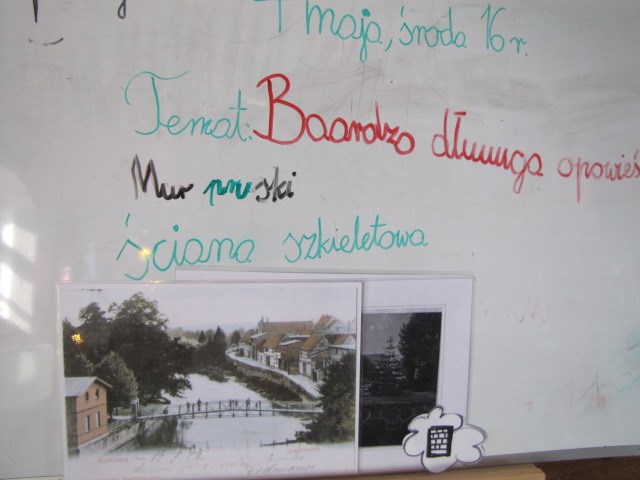 maja, środa 16 r.
Temat: Baardzo dłuuuga opowieś
Mur pruski
ściana szkieletowa